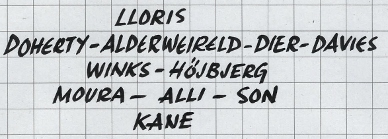 LLORIS
DOHERTY-ALDERWEIRELD-DIER-DAVIES
WINKS-HÖJBJERG
MOURA- ALLI - SON
KANE